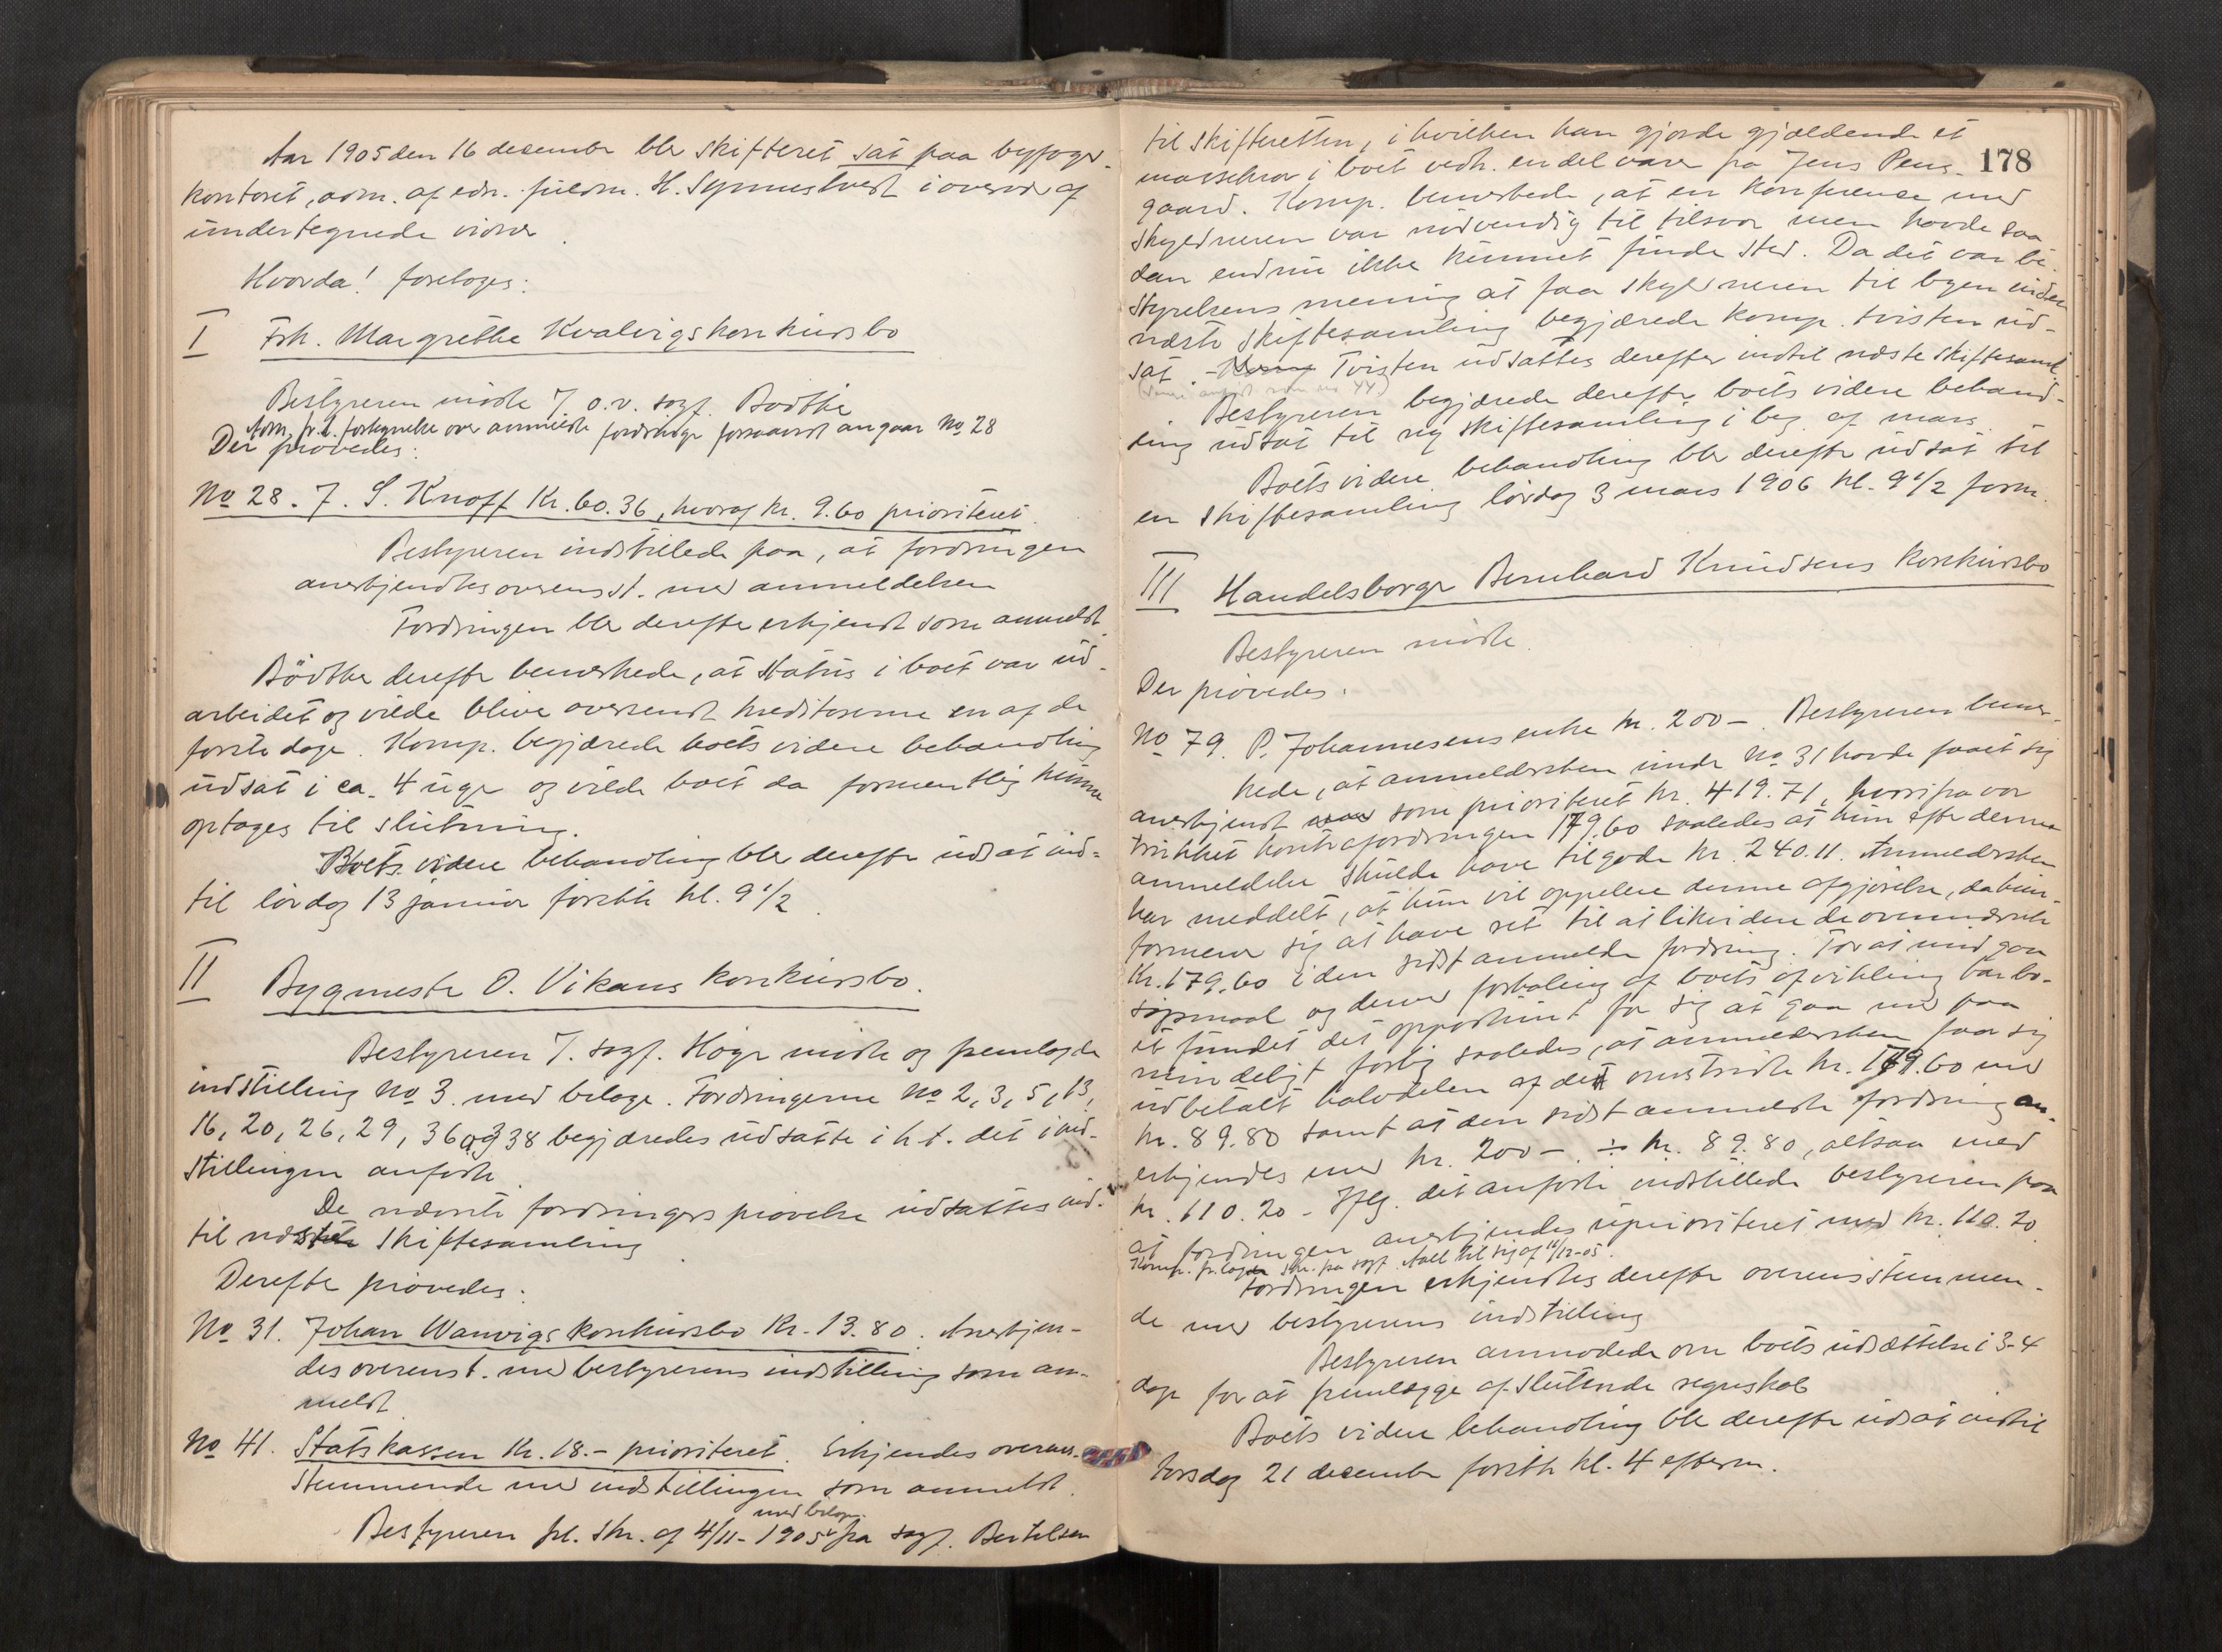 Aar 1905 den 16 desember blev skifteret sat paa byfoged-
kontoret, adm. af edsv. fuldm. H. Symmestvedt i overvær af
undertegnede vidner.
Hvorda! foretoges:
I Frk. Margrethe Kvalvigs konkursbo
Bestyreren mødte v. o.r. sagf. Bødtker
Adm. fr.l. fortegnelse over anmeldte fordringer forsaavidt angaar No 28
Der prøvedes:
No 28. F. S. Knoff Kr. 60.36, hvoraf kr. 9.60 prioriteret.
Bestyreren indstillede paa, at fordringen
anerkjendtes overensst. med anmeldelsen
Fordringen blev derefter erkjendt som anmeldt.
Bödtker derefter bemerkede, at status i boet var ud-
arbeidet og vilde blive oversendt kreditorerne en af de
første dage. Komp. begjærede boets videre behandling
udsat i ca. 4 uger og vilde boet da formentlig kunne
optages til slutning.
Boets videre behandling blev derefter udsat ind-
til lørdag 13 januar førstk. kl. 9 1/2.
II Bygmester O. Vikans konkursbo.
Bestyreren v. sagf. Høyer mødte og fremlagde
indstilling No 3 med bilage. Fordringerne No 2, 3, 5, 13,
16, 20, 26, 29, 36 og 38 begjæredes udsatte i h.t. det i ind-
stillingen anførte.
De nævnte fordringers prøvelse udsattes ind-
til næste skiftesamling
Derefter prøvedes:
No 31. Johan Wanvigs konkursbo Kr. 13.80. Anerkjen-
des overenst. med bestyrerens indstilling som an-
meldt
No 41. Statskassen Kr. 18.- prioriteret. Erkjendes overens-
stemmende med indstillingen som anmeldt.
med bilage
Bestyreren frl. skr. af 4/11-1905 fra sagf. Bertelsen
178
til skifteretten, i hvilken han gjorde gjældende et
massekrav i boet vedr. en del varer fra Jens Peus-
gaard. Komp. bemerkede, at en konference med
skyldneren var nødvendig til tilsvar men havde saa-
dan endnu ikke kunnet finde sted. Da det var be-
styrelsens mening at faa skyldneren til byen inden
næste skiftesamling begjærede komp. tvisten ud-
sat. - Komp Tvisten udsattes derefter indtil næste skiftesaml.
Bestyreren begjærede derefter boets videre behand-
ling udsat til ny skiftesamling i beg. af mars.
Boets videre behandling blev derefter udsat til
en skiftesamling lørdag 3 mars 1906 kl. 9 1/2 form.
III Handelsborger Bernhard Knudsens konkursbo
Bestyreren mødte.
Der prøvedes:
No 79. P. Johannesens enke kr. 200 -. Bestyreren bemer-
kede, at anmeldersken under No 31 havde faaet sig
anerkjendt som prioriteret kr. 419.71, hvorifra var
trukket kontrafordringen 179.60 saaledes at hun efter denne
anmeldelse skulde have tilgode kr. 240.11. Anmeldersken
har meddelt, at hun vil appellere denne afgjørelse, da hun
formener sig at have ret til at likvidere de ovennævnte
Kr. 179.60 i den sidst anmeldte fordring. For at undgaa
søgsmaal og derved forhaling af boets afvikling har bo-
et fundet det opportunt for sig at gaa med paa
mindeligt forlig saaledes, at anmeldersken faar sig
udbetalt halvdelen af det omstridte kr. 179.60 med
kr. 89.80 samt at den sidst anmeldte fordring an-
erkjendes med kr. 200 -. ÷ kr. 89.80, altsaa med
kr. 110.20 - Iflg. det anførte indstillede bestyreren paa
at fordringen anerkjendes uprioriteret med kr. 110.20.
Komp. fr.lagde skr. fra sagf. Aall til sig af 16/12-05.
Fordringen erkjendtes derefter overensstemmen-
de med bestyrerens indstilling
Bestyreren anmodede om boets udsættelse i 3-4
dage for at fremlægge afsluttende regnskab
Boets videre behandling blev derefter udsat indtil
torsdag 21 desember førstk. kl. 4 efterm.